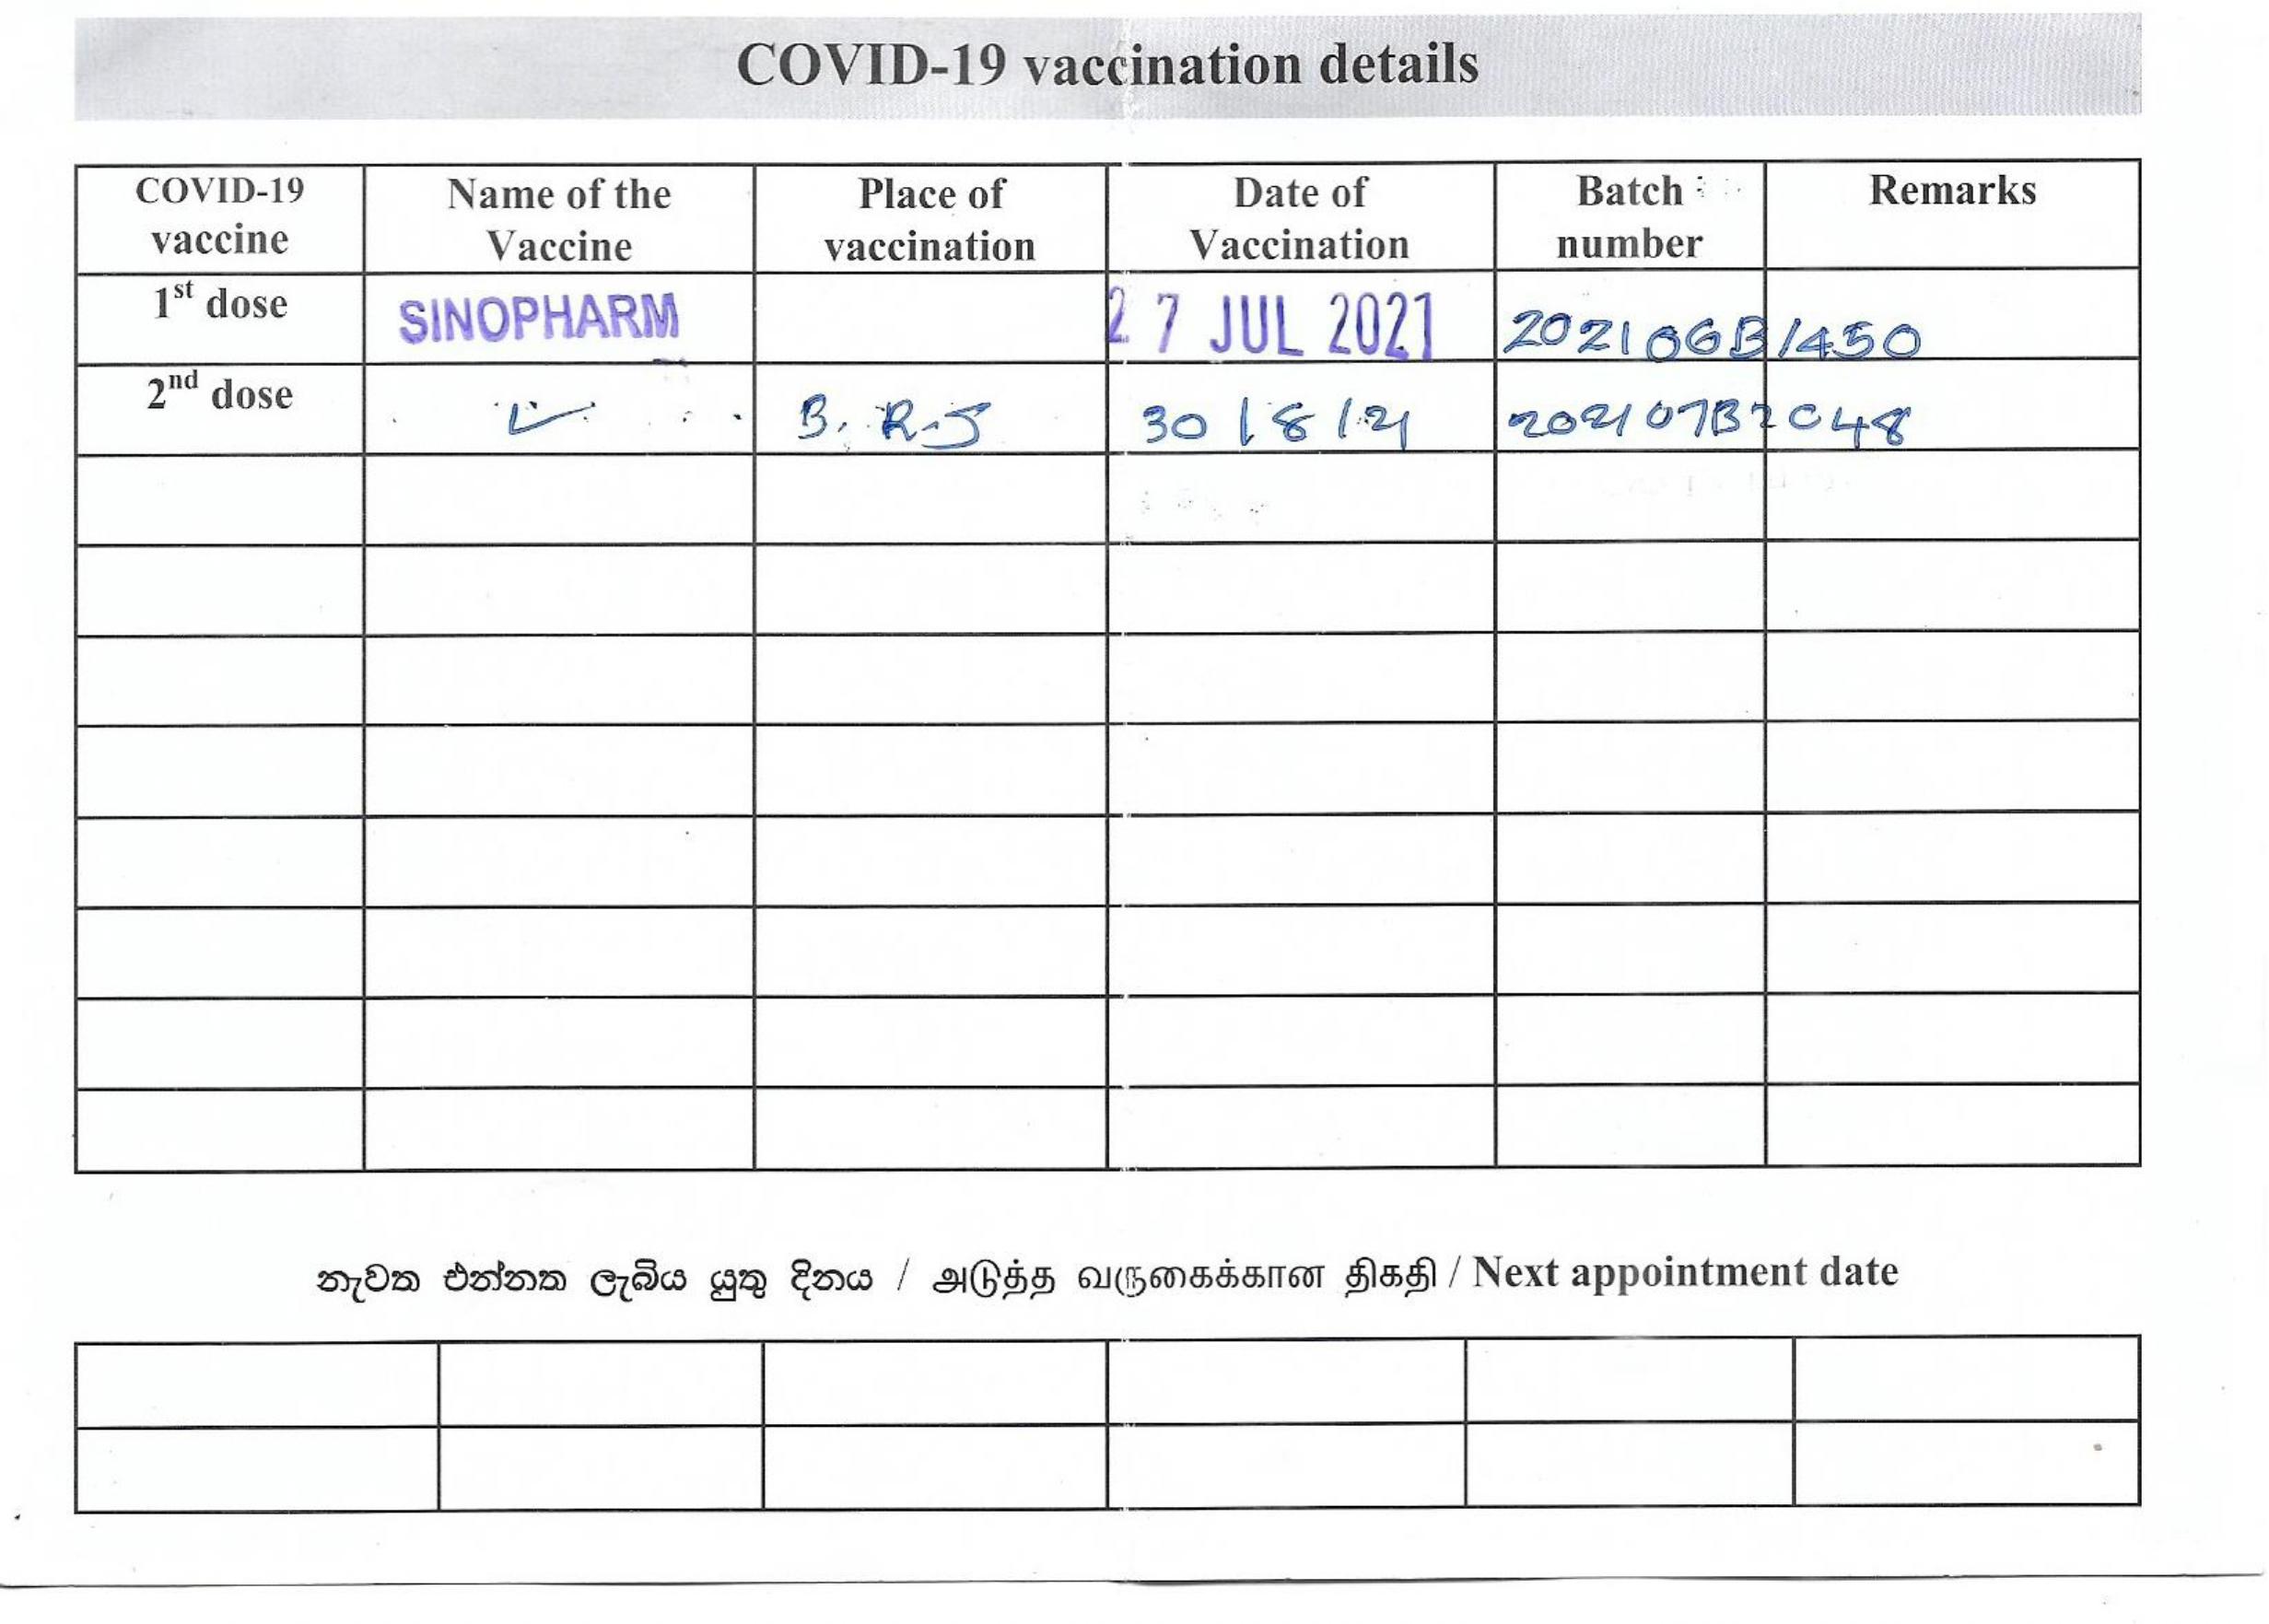 COVID-19 vaccination details
COVID-19 vaccine Name of the Vaccine Place of vaccination Date of Vaccination Batch number Remarks
1st dose SINOPHARM 27 JUL 2021 202106B1450
2nd dose B. R. J 30/8/21 202107B2048
නැවත එන්නත ලැබිය යුතු දිනය / அடுத்த வருகைக்கான திகதி / Next appointment date